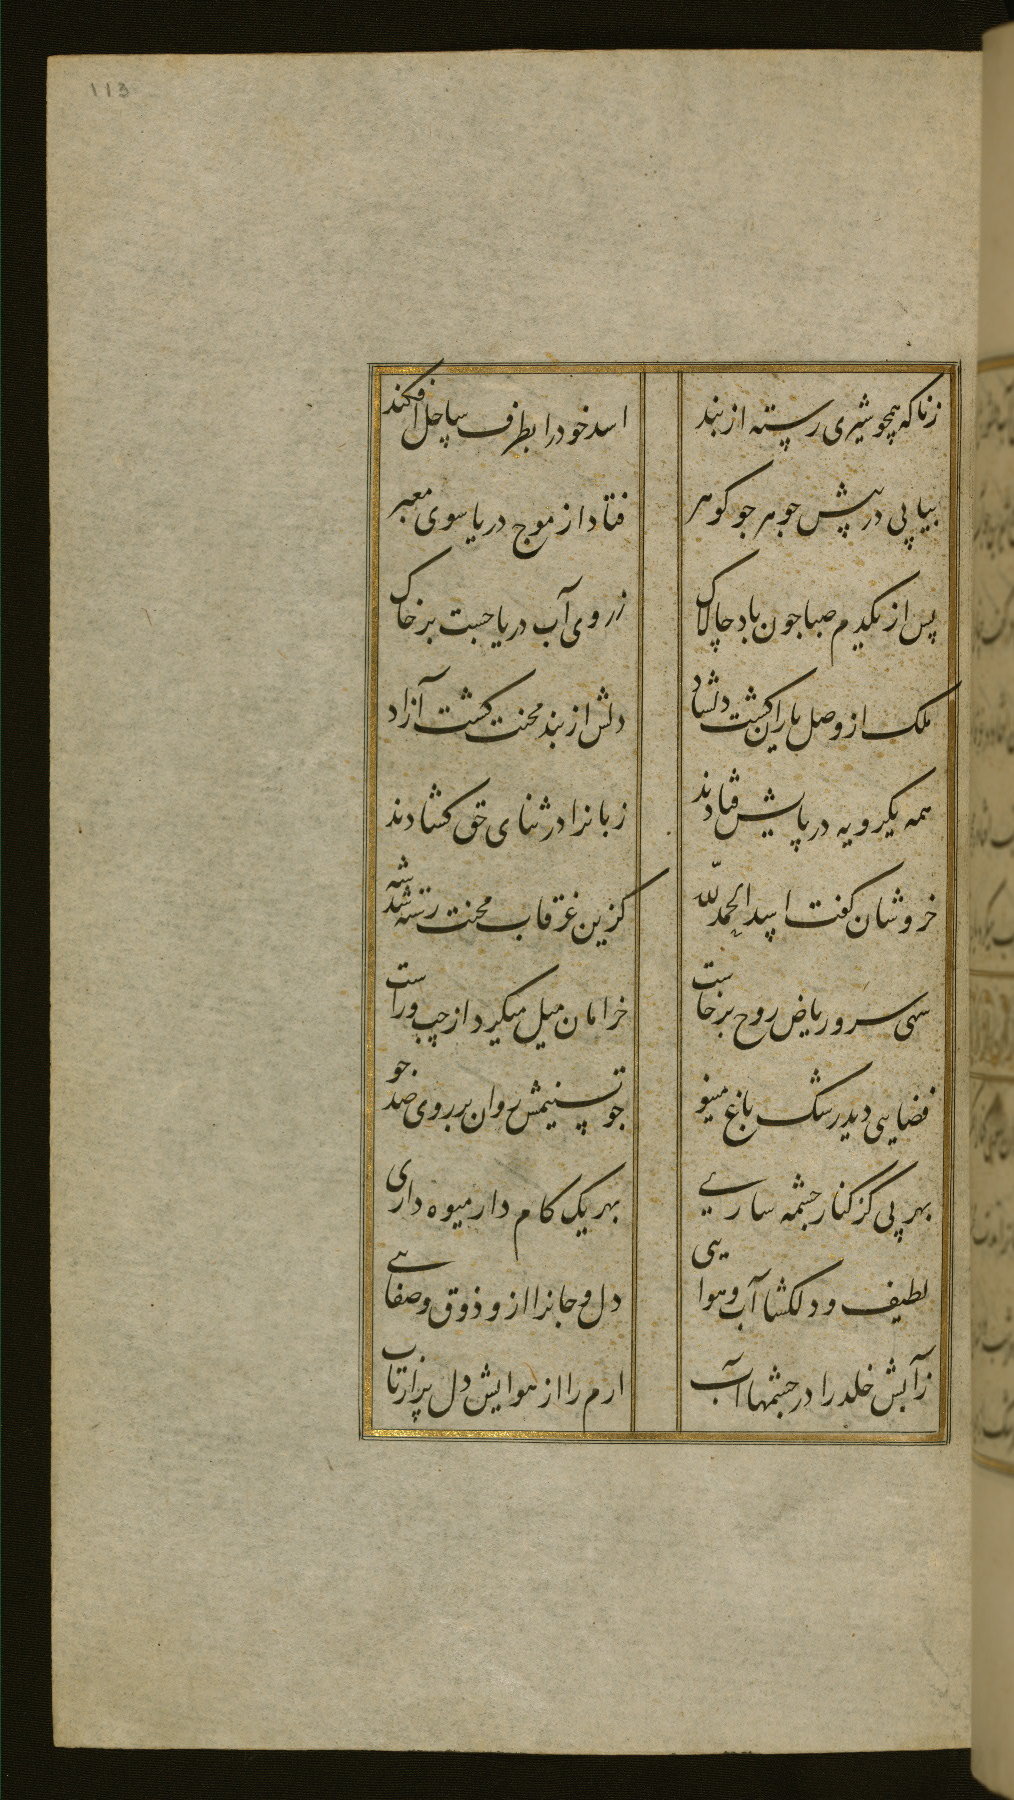 113
زناکه همچو شیری رسته از بند
اسد خود را بطرف ساحل افکند
بیاپی در پیش جوهر جو کوهر
فتاد از موج دریا سوی معبر
پس از یکدم صبا جون باد جالاک
ز روی آب دریا جست بر خاک
ملک از وصل یاران کشت دلشاد
دلش از بند محنت کشت آزاد
همه یکرویه در پایش فتادند
زبانرا در ثنای حق کشادند
خروشان کفت اسد الحمد لله
کزین غرقاب محنت رسته شد شه
سهی سرو ریاض روح برخاست
خرامان میل میکرد از جب و راست
فضایی دید رشک باغ مینو
جو تسنیمش روان بر روی صد جو
بهر پی کز کنار جشمه ساری
بهر یک کام دار میوه داری
لطیف و دلکشا آب و هوایی
دل و جانرا ازو ذوق و صفایی
ز آبش خلد را در جشمها آب
ارم را از هوایش دل پر از تاب